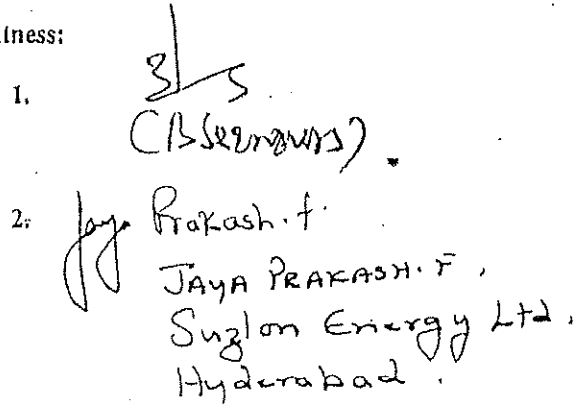 tness:
1.
2. Jaya Prakash.f.
JAYA PRAKASH.F,
Suzlon Energy Ltd.
Hyderabad.